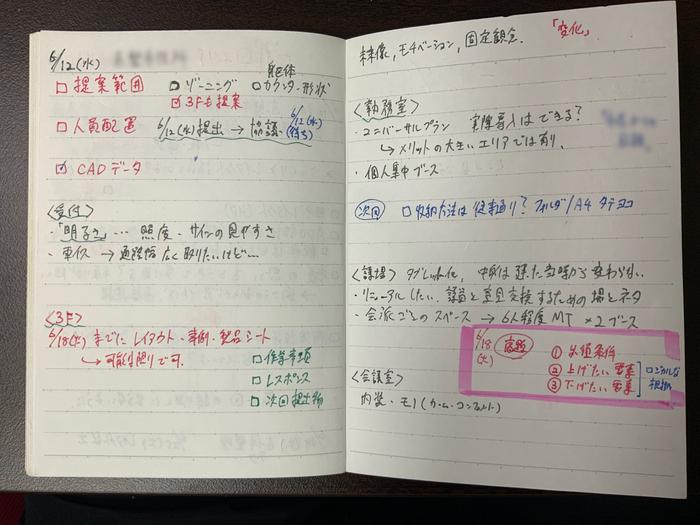 6/12(水)
□ 提案範囲
□ ゾーニング
□ カウンター形状
☑ 3Fも提案
□ 人員配置
6/12(水)提出 → 協議
6/12(水)
☑ CADデータ
<受付>
・「明るさ」… 照度・サインの見やすさ
・車イス → 通路幅広く取りたいけど…
<3F>
6/18(火)までにレイアウト・事例・製品シート
↳ 可能な限りです。
□ 作業事項
□ レスポンス
□ 次回提出物
未来像, モチベーション, 固定観念.
「変化」
<執務室>
・ユニバーサルプラン 実際導入はできる?
↳ メリットの大きいエリアでは有り.
・個人集中ブース
次回 □ 収納方法は従来通り? フォルダ/A4 タテヨコ
<議場> タブレット化, 中身は建た当時から変わらない.
・リニューアルしたい. 議員と意見交換するための場とネタ
・会派ごとのスペース → 6人程度 MT ×2ブース
6/18
(火)
① 必須条件
② 上げたい要素
③ 下げたい要素
ロジカルな
<会議室>
内装・モノ